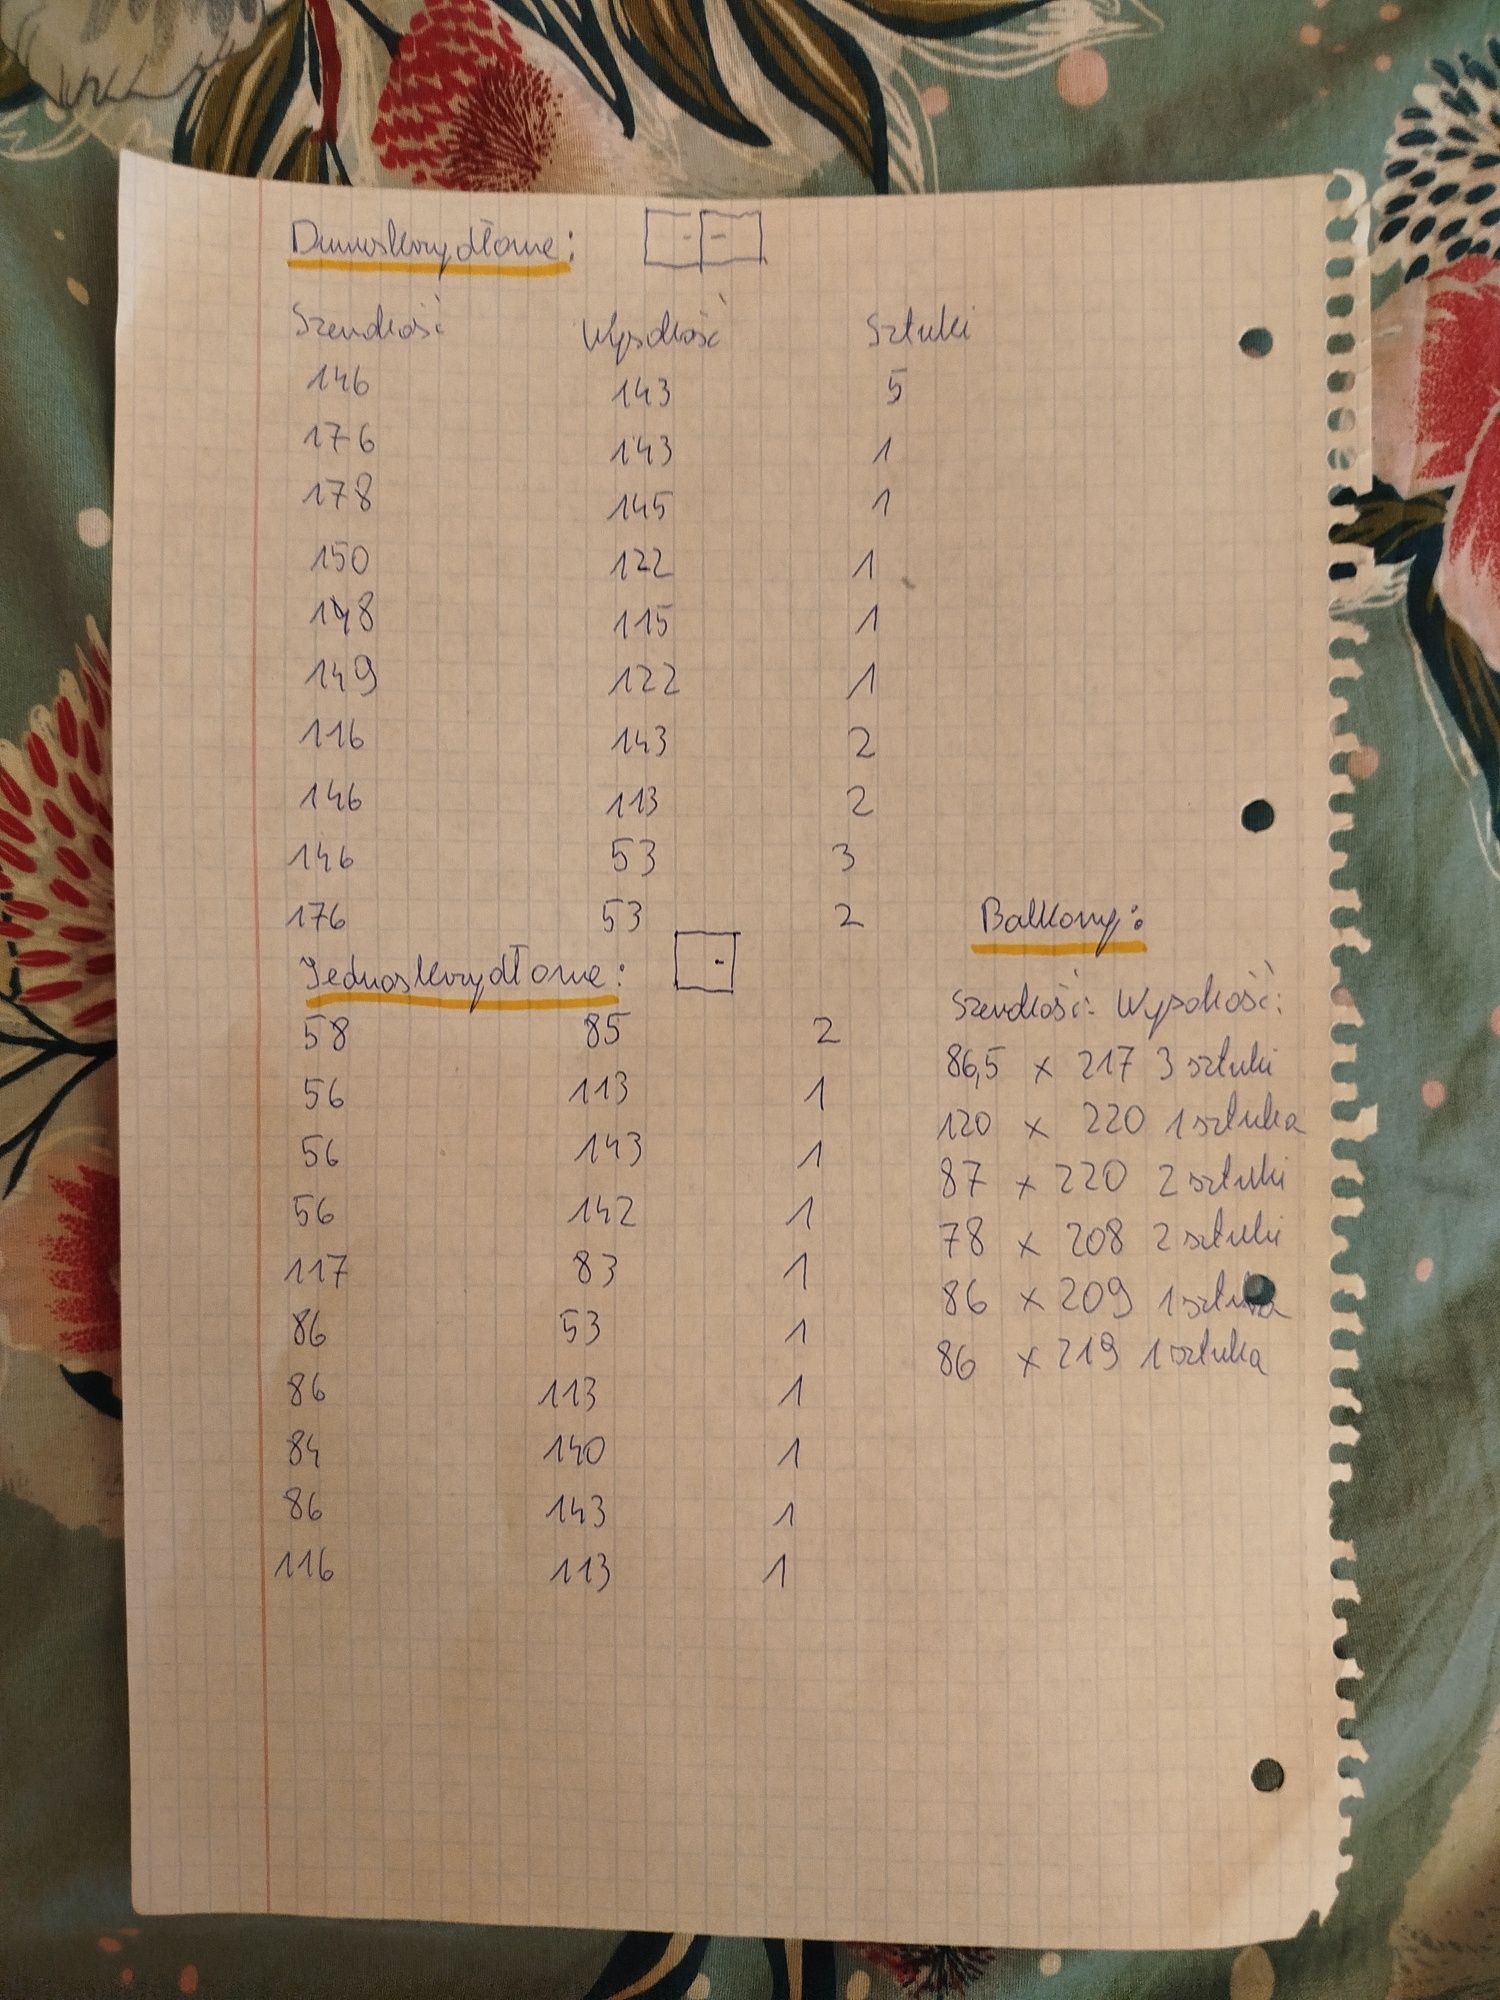 Dwuskrzydłowe:
Szerokość Wysokość Sztuki
146 143 5
176 143 1
178 145 1
150 122 1
148 115 1
149 122 1
116 143 2
146 113 2
146 53 3
176 53 2
Jednoskrzydłowe:
58 85 2
56 113 1
56 143 1
56 142 1
117 83 1
86 53 1
86 113 1
84 140 1
86 143 1
116 113 1
Balkony:
Szerokość: Wysokość:
86,5 x 217 3 sztuki
120 x 220 1 sztuka
87 x 220 2 sztuki
78 x 208 2 sztuki
86 x 209 1 sztuka
86 x 219 1 sztuka